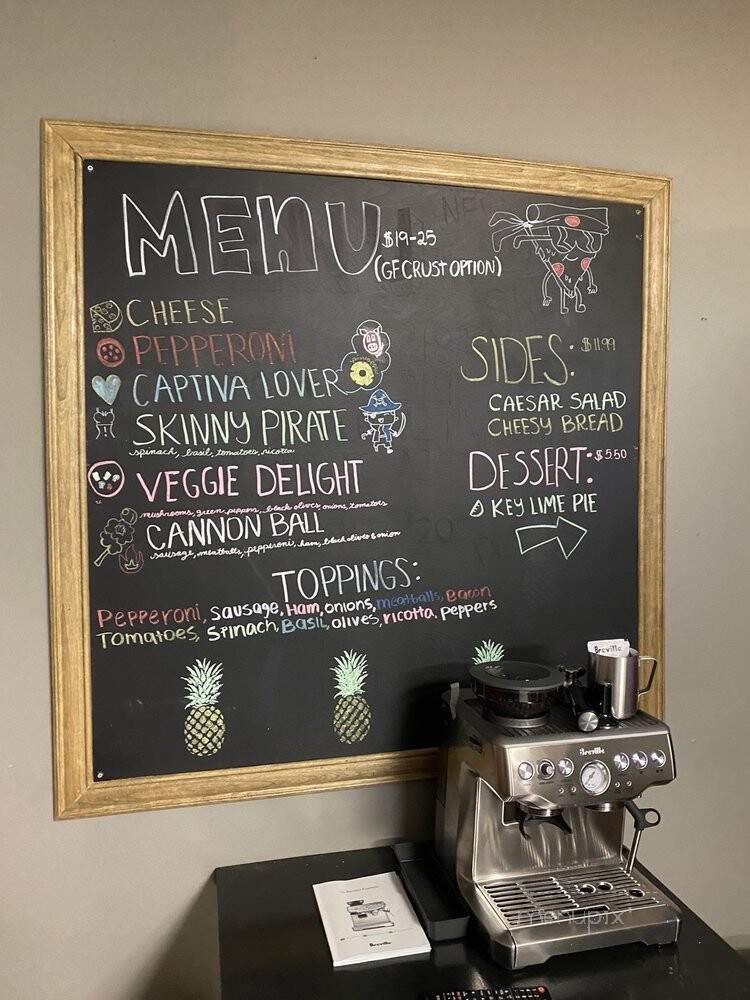 MENU
$19-25
(GF CRUST OPTION)
CHEESE
PEPPERONI
CAPTIVA LOVER
SKINNY PIRATE
spinach, basil, tomatoes, ricotta
VEGGIE DELIGHT
mushrooms, green peppers, black olives, onions, tomatoes
CANNON BALL
sausage, meatballs, pepperoni, ham, black olives & onion
SIDES: $11.99
CAESAR SALAD
CHEESY BREAD
DESSERT: $5.50
KEY LIME PIE
TOPPINGS:
Pepperoni, sausage, Ham, onions, meatballs, Bacon
Tomatoes, Spinach, Basil, olives, ricotta, peppers
Breville
Breville
Breville
menupix